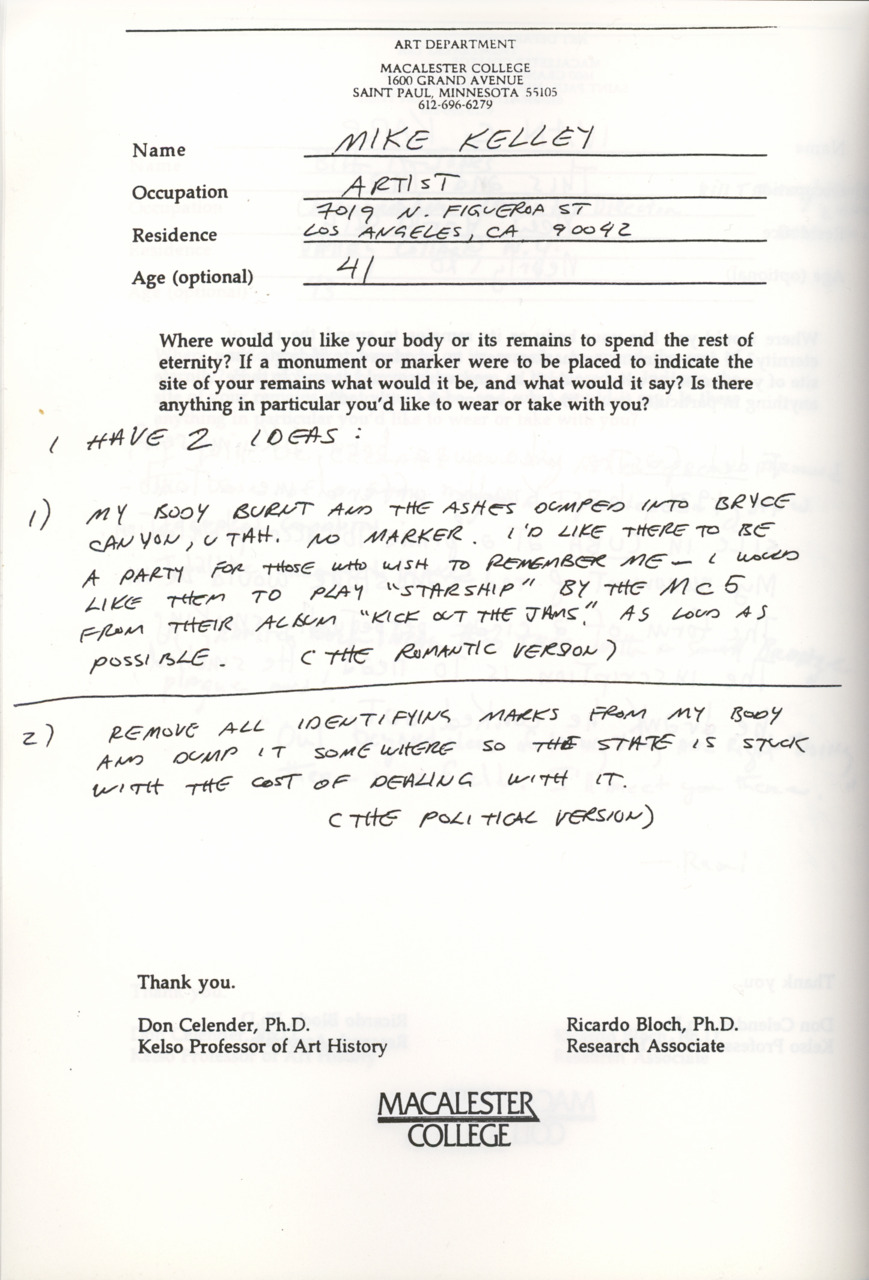 ART DEPARTMENT
MACALESTER COLLEGE
1600 GRAND AVENUE
SAINT PAUL, MINNESOTA 55105
612-696-6279
Name MIKE KELLEY
Occupation ARTIST
7019 N. FIGUEROA ST
Residence LOS ANGELES, CA 90042
Age (optional) 41
Where would you like your body or its remains to spend the rest of
eternity? If a monument or marker were to be placed to indicate the
site of your remains what would it be, and what would it say? Is there
anything in particular you'd like to wear or take with you?
I HAVE 2 IDEAS:
1) MY BODY BURNT AND THE ASHES DUMPED INTO BRYCE
CANYON, UTAH. NO MARKER. I'D LIKE THERE TO BE
A PARTY FOR THOSE WHO WISH TO REMEMBER ME – I WOULD
LIKE THEM TO PLAY "STARSHIP" BY THE MC5
FROM THEIR ALBUM "KICK OUT THE JAMS," AS LOUD AS
POSSIBLE. (THE ROMANTIC VERSION)
2) REMOVE ALL IDENTIFYING MARKS FROM MY BODY
AND DUMP IT SOMEWHERE SO THE STATE IS STUCK
WITH THE COST OF DEALING WITH IT.
(THE POLITICAL VERSION)
Thank you.
Don Celender, Ph.D. Ricardo Bloch, Ph.D.
Kelso Professor of Art History Research Associate
MACALESTER
COLLEGE